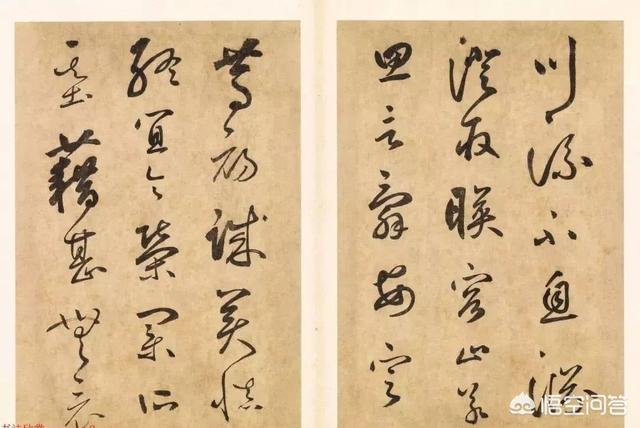 川流不息淵
澄取暎容止若
思言辭安定
篤初誠美慎
終宜令榮業所
基藉甚無竟
悟空问答